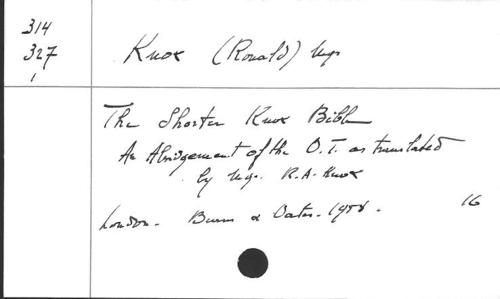 314
327
1
Knox (Ronald) Mgr
The Shorter Knox Bible
An Abridgement of the O.T. as translated
by Mgr. R.A. Knox
London. Burns & Oates. 1958.
16